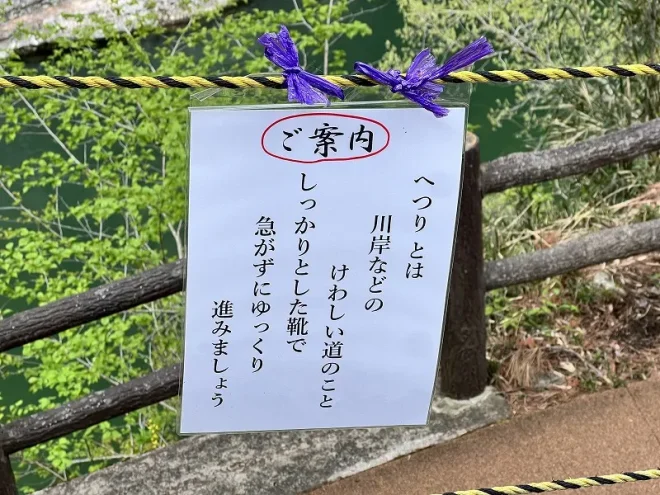 ご案内
へつりとは
川岸などの
けわしい道のこと
しっかりとした靴で
急がずにゆっくり
進みましょう